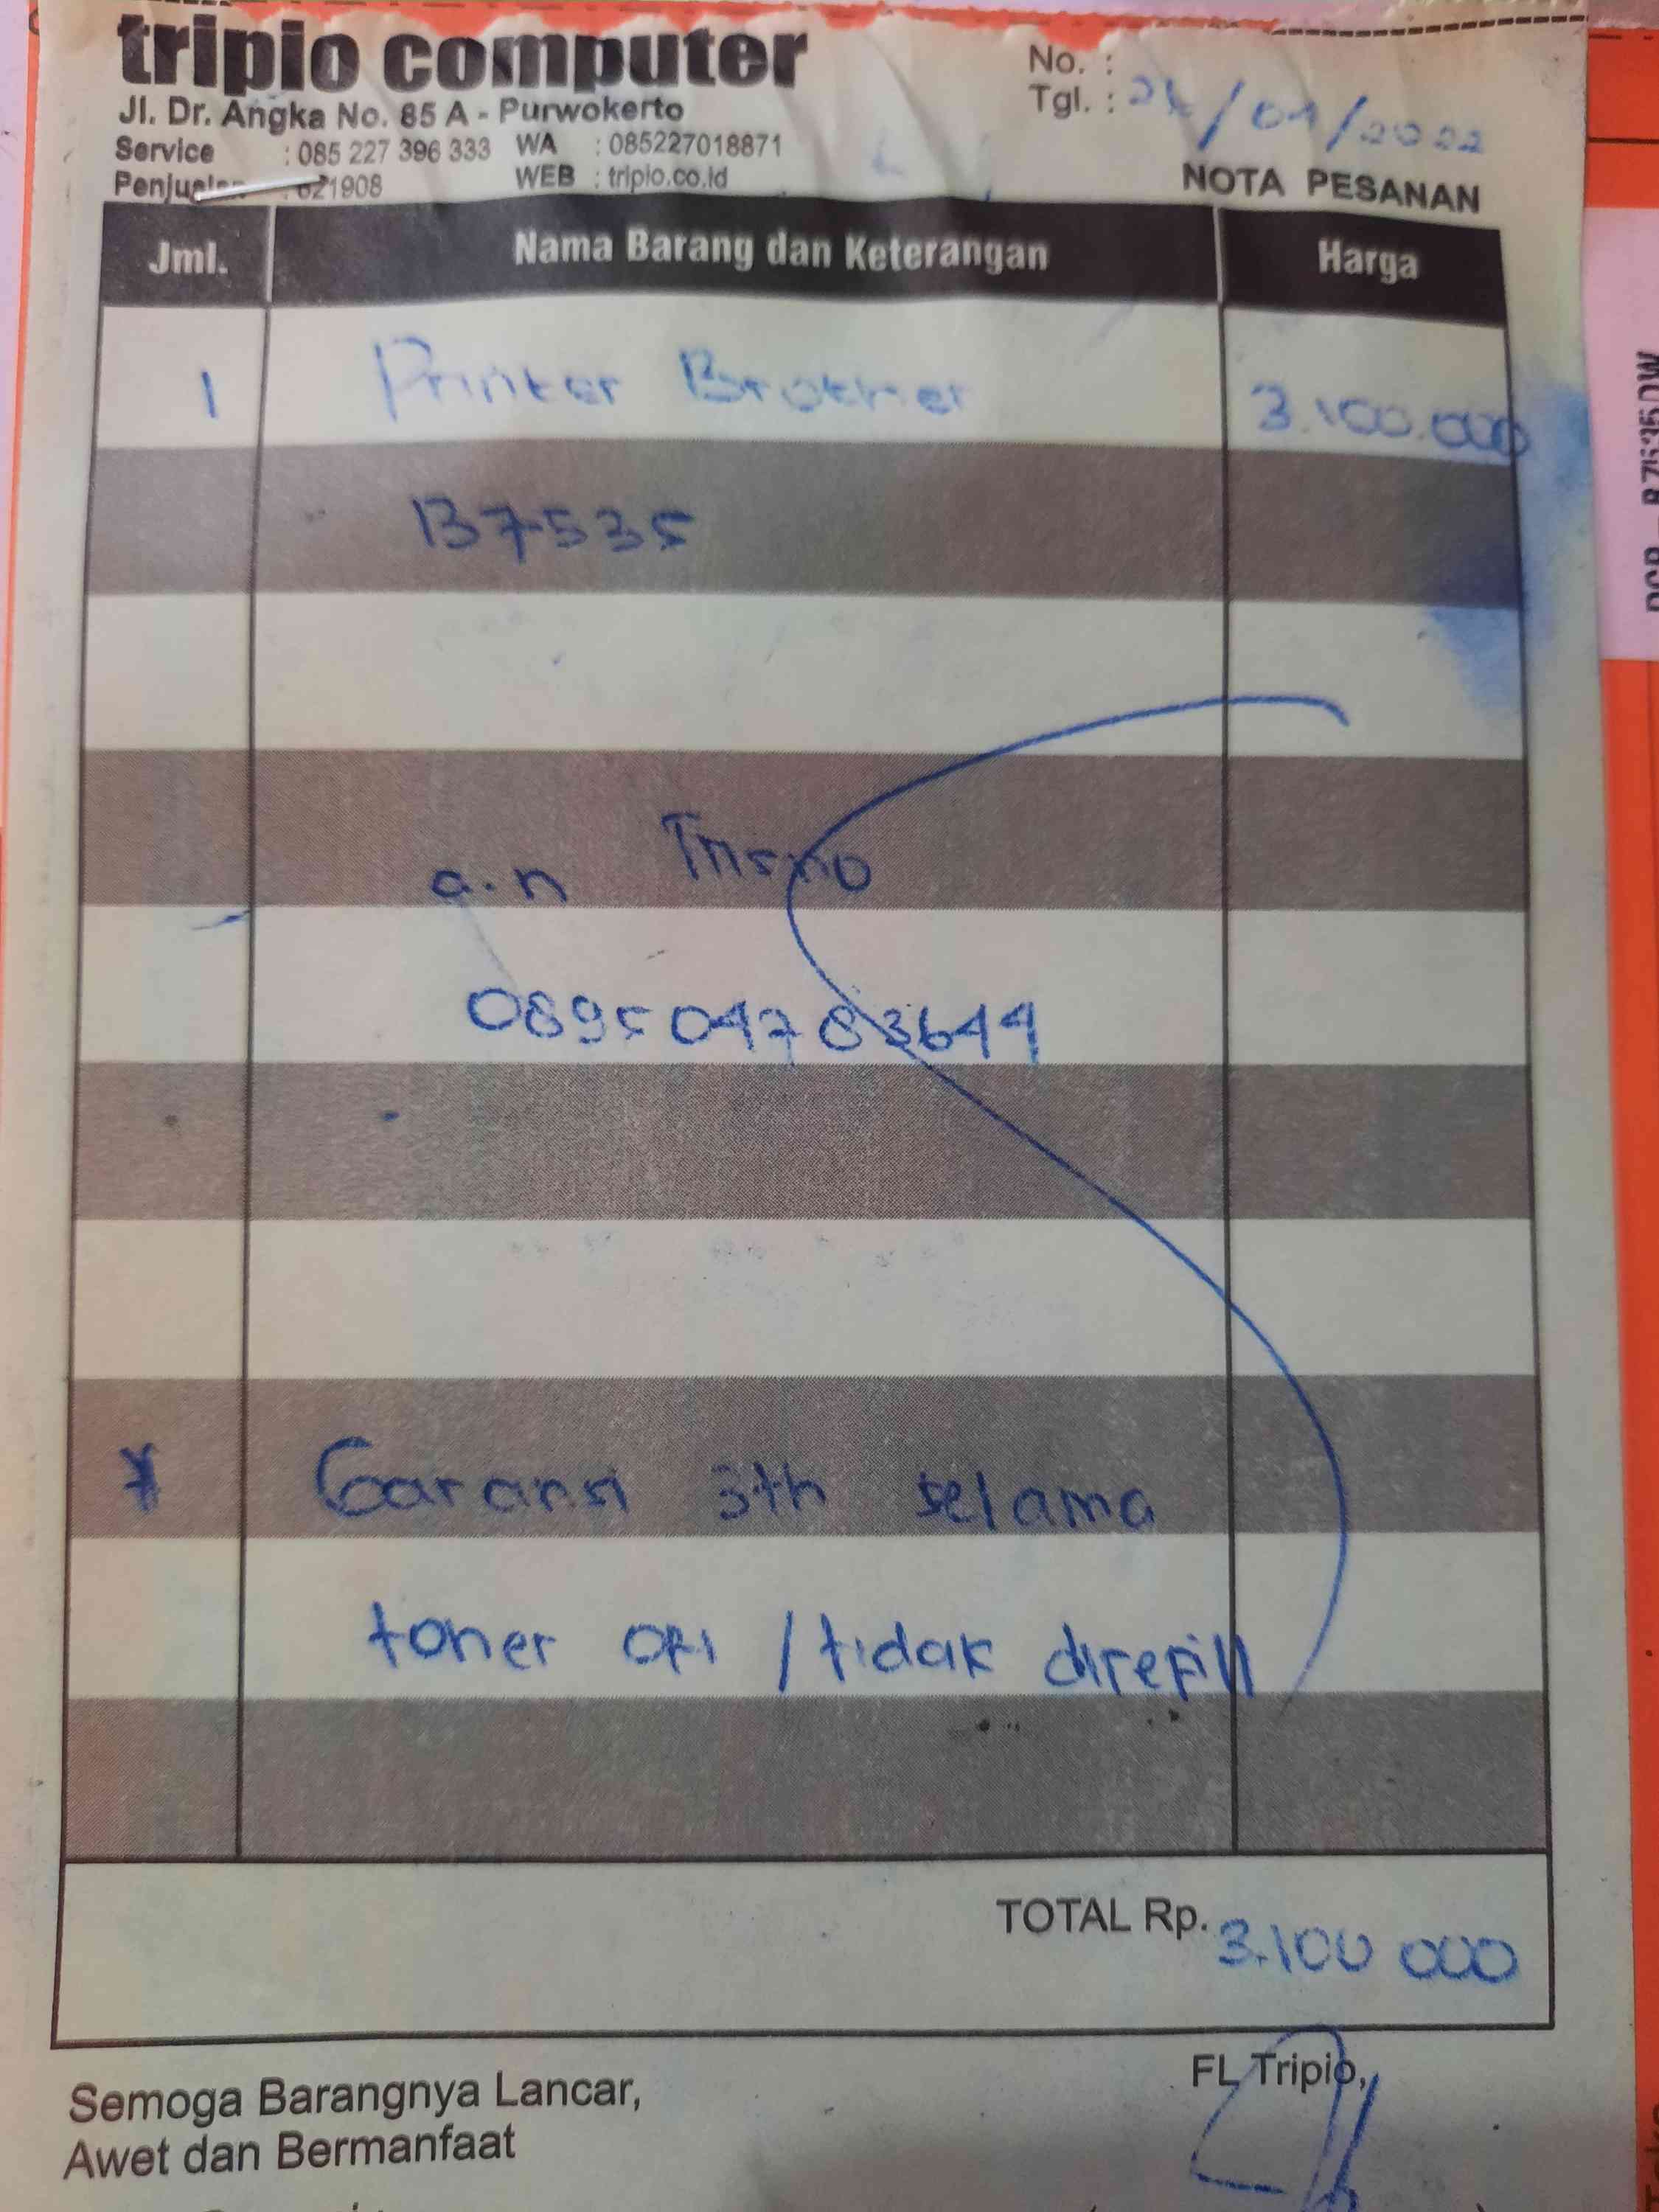 tripio computer
Jl. Dr. Angka No. 85 A - Purwokerto
Service : 085 227 396 333 WA : 085227018871
621908 WEB : tripio.co.id
No. :
Tgl. : /2022
NOTA PESANAN
Jml. Nama Barang dan Keterangan Harga
1 Printer Brother 3.100.000
B7535
a.n Trisno
0895
* Garansi 3th selama
toner ori / tidak direfill
TOTAL Rp. 3.100 000
FL Tripio,
Semoga Barangnya Lancar,
Awet dan Bermanfaat